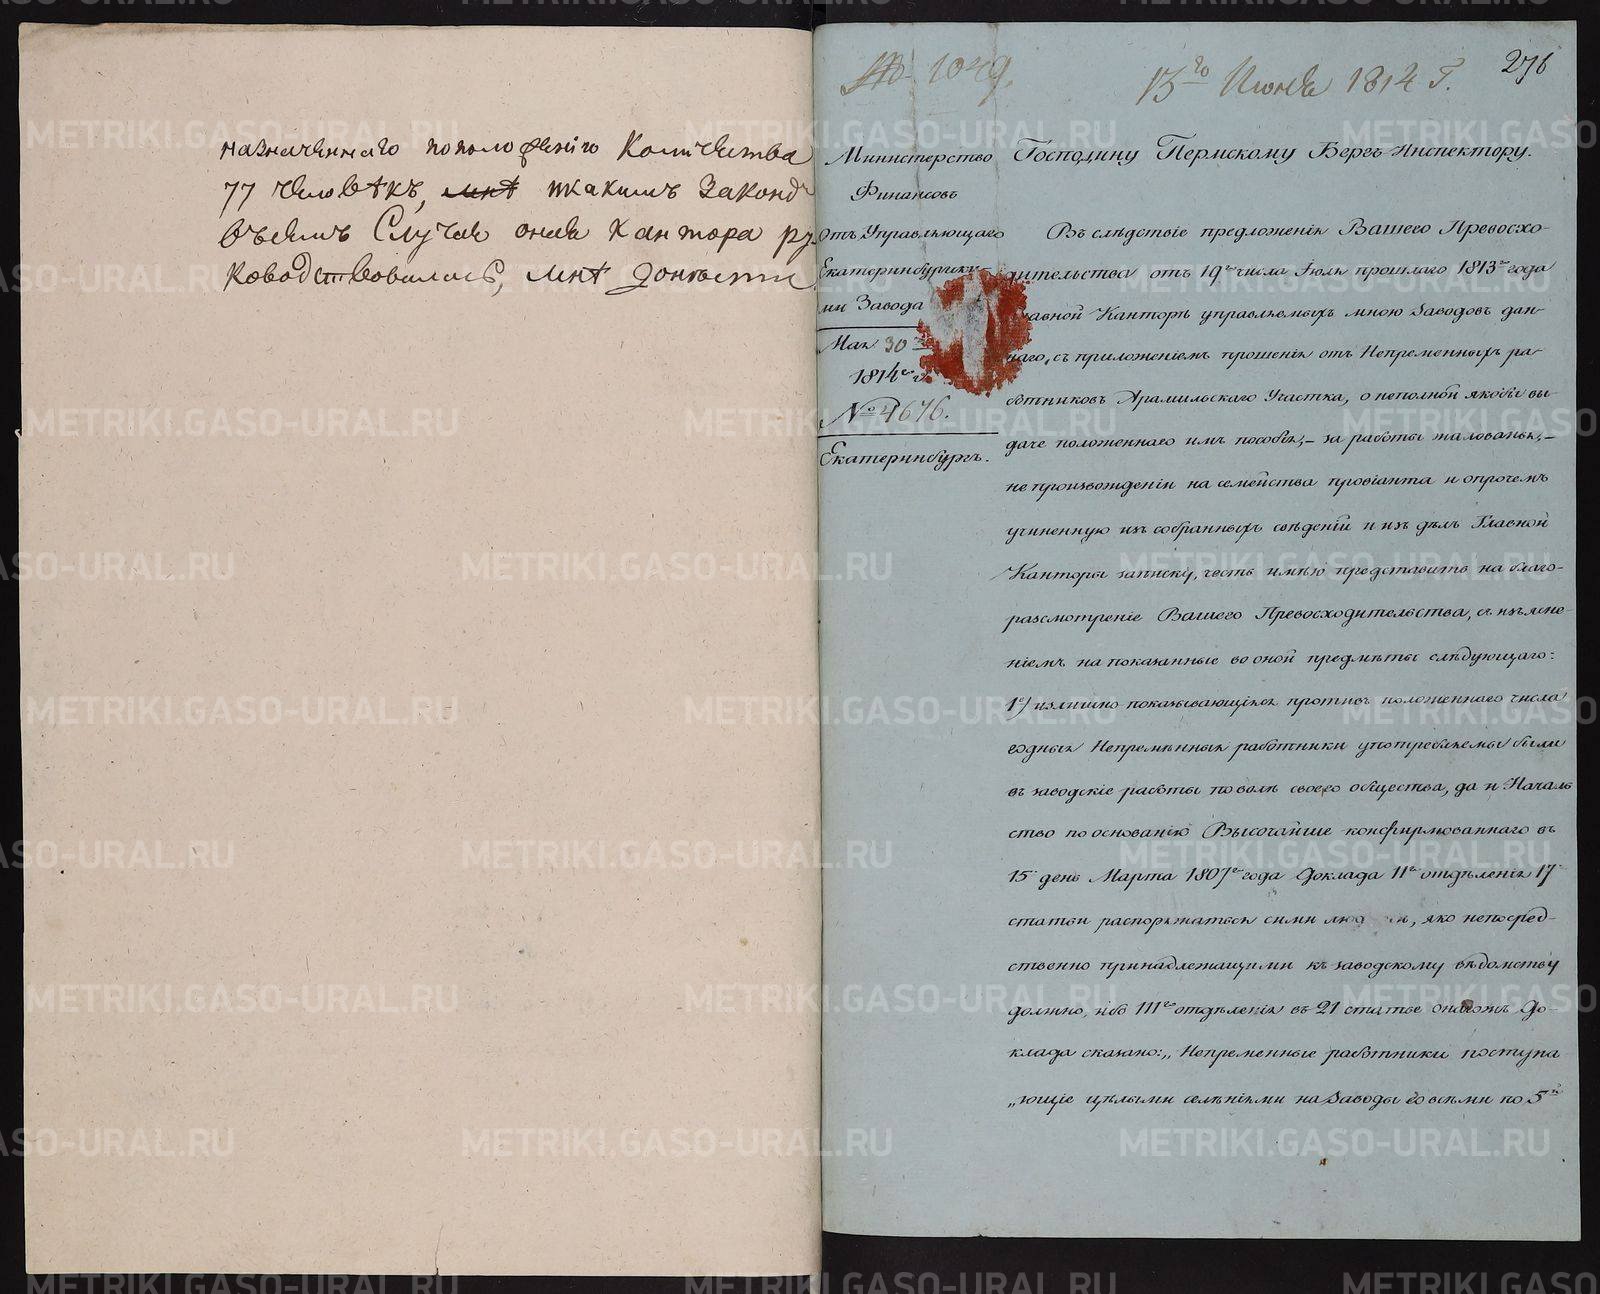 назначеннаго поположенiю Количества
77 человѣкъ, мнѣ такимъ Закон
въсемъ Случае онае Кантора ру
ководствовалась, мнѣ донести
№ 1049.
13го Июня 1814 Г.
276
Министерство
Финансовъ
отъ Управляющаго
Екатеринбургски-
ми Завода
Мая 30
1814го г.
№ 4676.
Екатеринбургъ.
Господину Пермскому Бергъ Инспектору.
Въ слѣдствiе предложенiя Вашего Превосхо-
дительства отъ 19го числа Iюля прошлаго 1813го года
главной Канторѣ управляемыхъ мною заводовъ дан-
наго, съ приложенiемъ прошенiя отъ Непременныхъ ра-
ботниковъ Арамильскаго Участка, о неполной якобы вы-
даче положеннаго имъ пособiя,– за работы жалованья,–
не произвожденiи на семейства провiанта и опрочемъ
учиненную изъ собранныхъ свѣденiй и изъ дѣлъ Главной
Канторы записку, честь имѣю представить на благо-
разсмотренiе Вашего Превосходительства, съ изъясне-
нiемъ на показанные во оной предмѣты слѣдующаго:
1е) излишно показывающiяся противъ положеннаго числа
годныя Непремѣнныя работники употребляемы были
въ заводскiе работы по волѣ своего общества, да и Началь
ство по основанiю Высочайше конфирмованнаго въ
15 день Марта 1807го года Доклада 11го отдѣленiя 17
статьи распоряжаться сими людьми, яко непосред-
ственно принадлежащими къ заводскому вѣдомству
должно, ибо 111го отдѣленiя въ 21 статье онагожъ До-
клада сказано: „Непременные работники поступа
„ющiе цѣлыми селѣнiями на Заводы со всѣми по 5й
METRIKI.GASO-URAL.RU